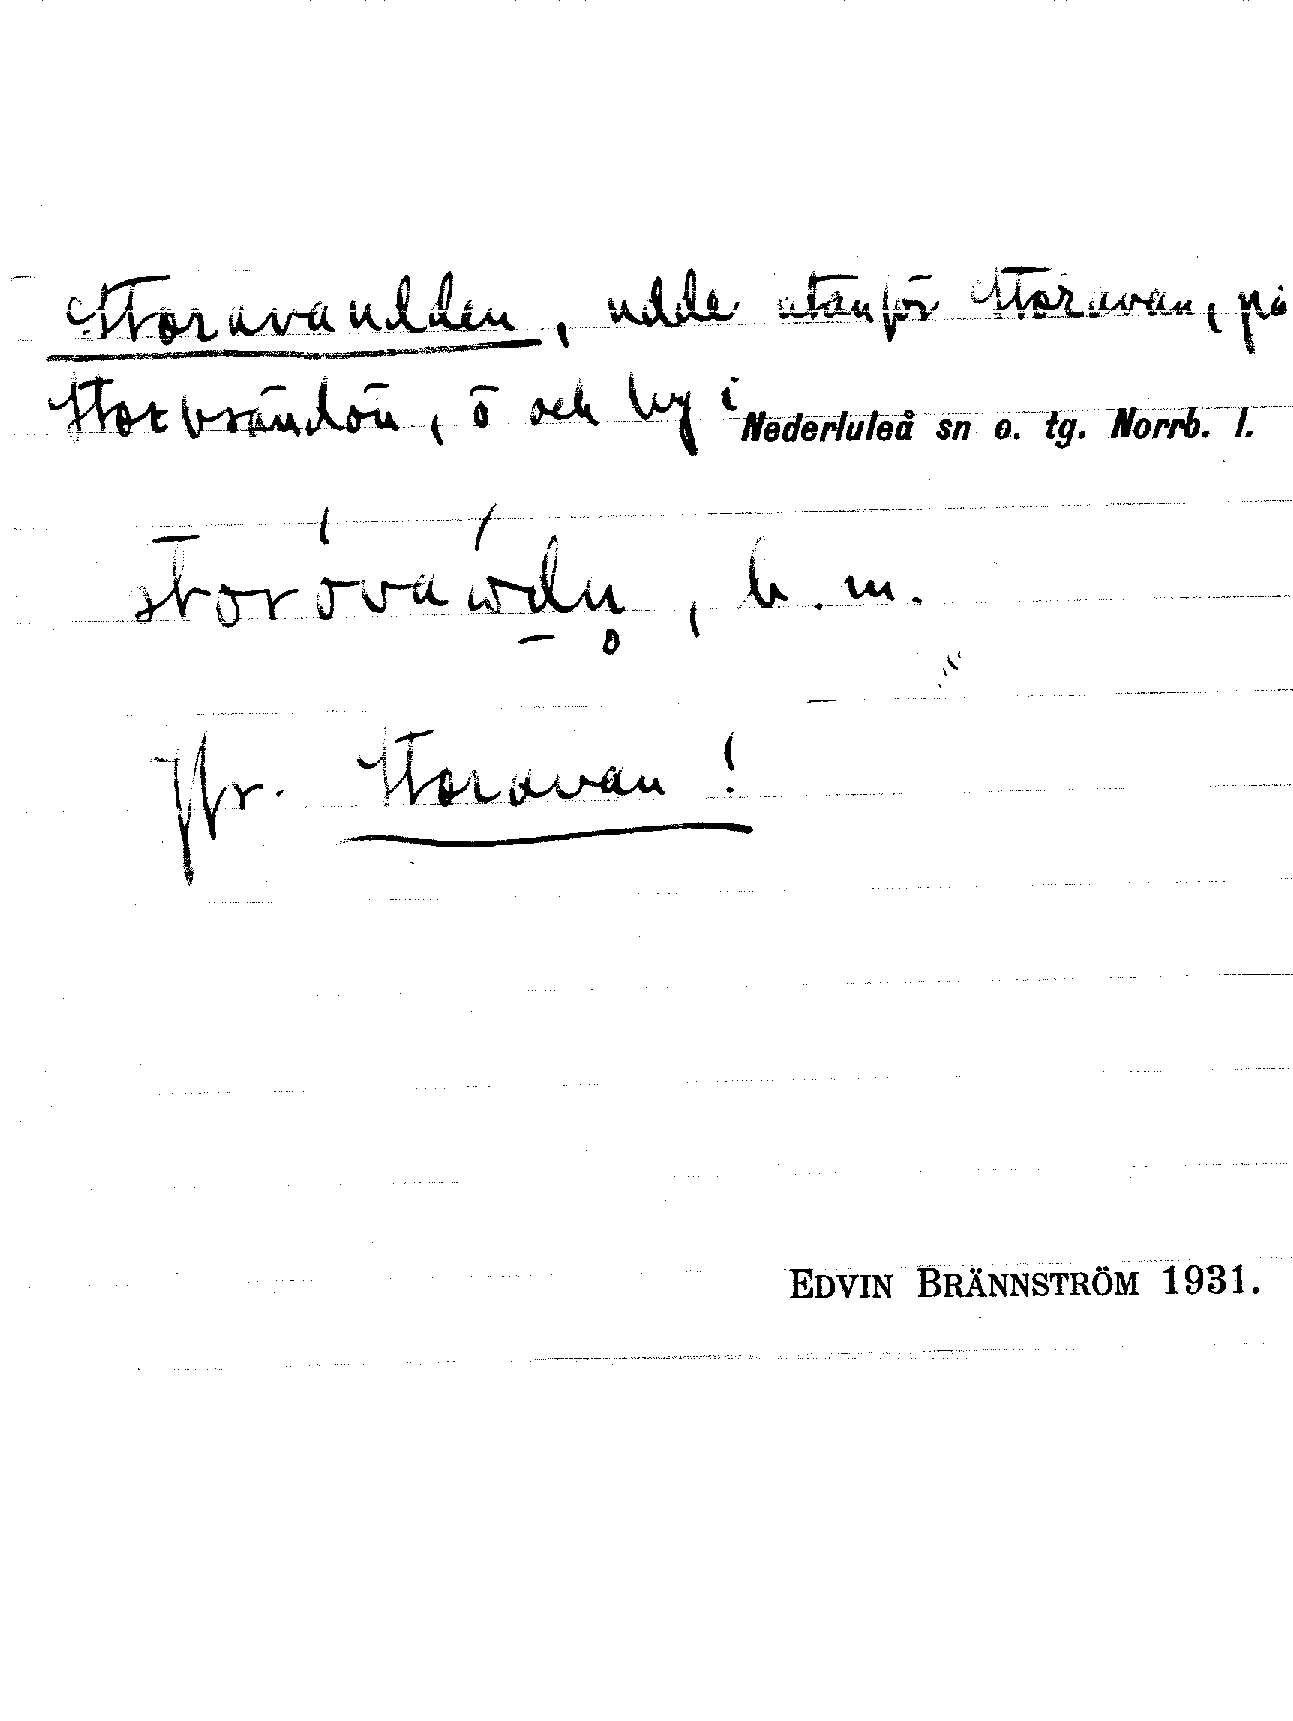 Storavaudden, udde utanför Storavan, på
Storbrändön, ö och by i Nederluleå sn o. tg. Norrb. l.
b. m.
Jfr. Storavan!
EDVIN BRÄNNSTRÖM 1931.